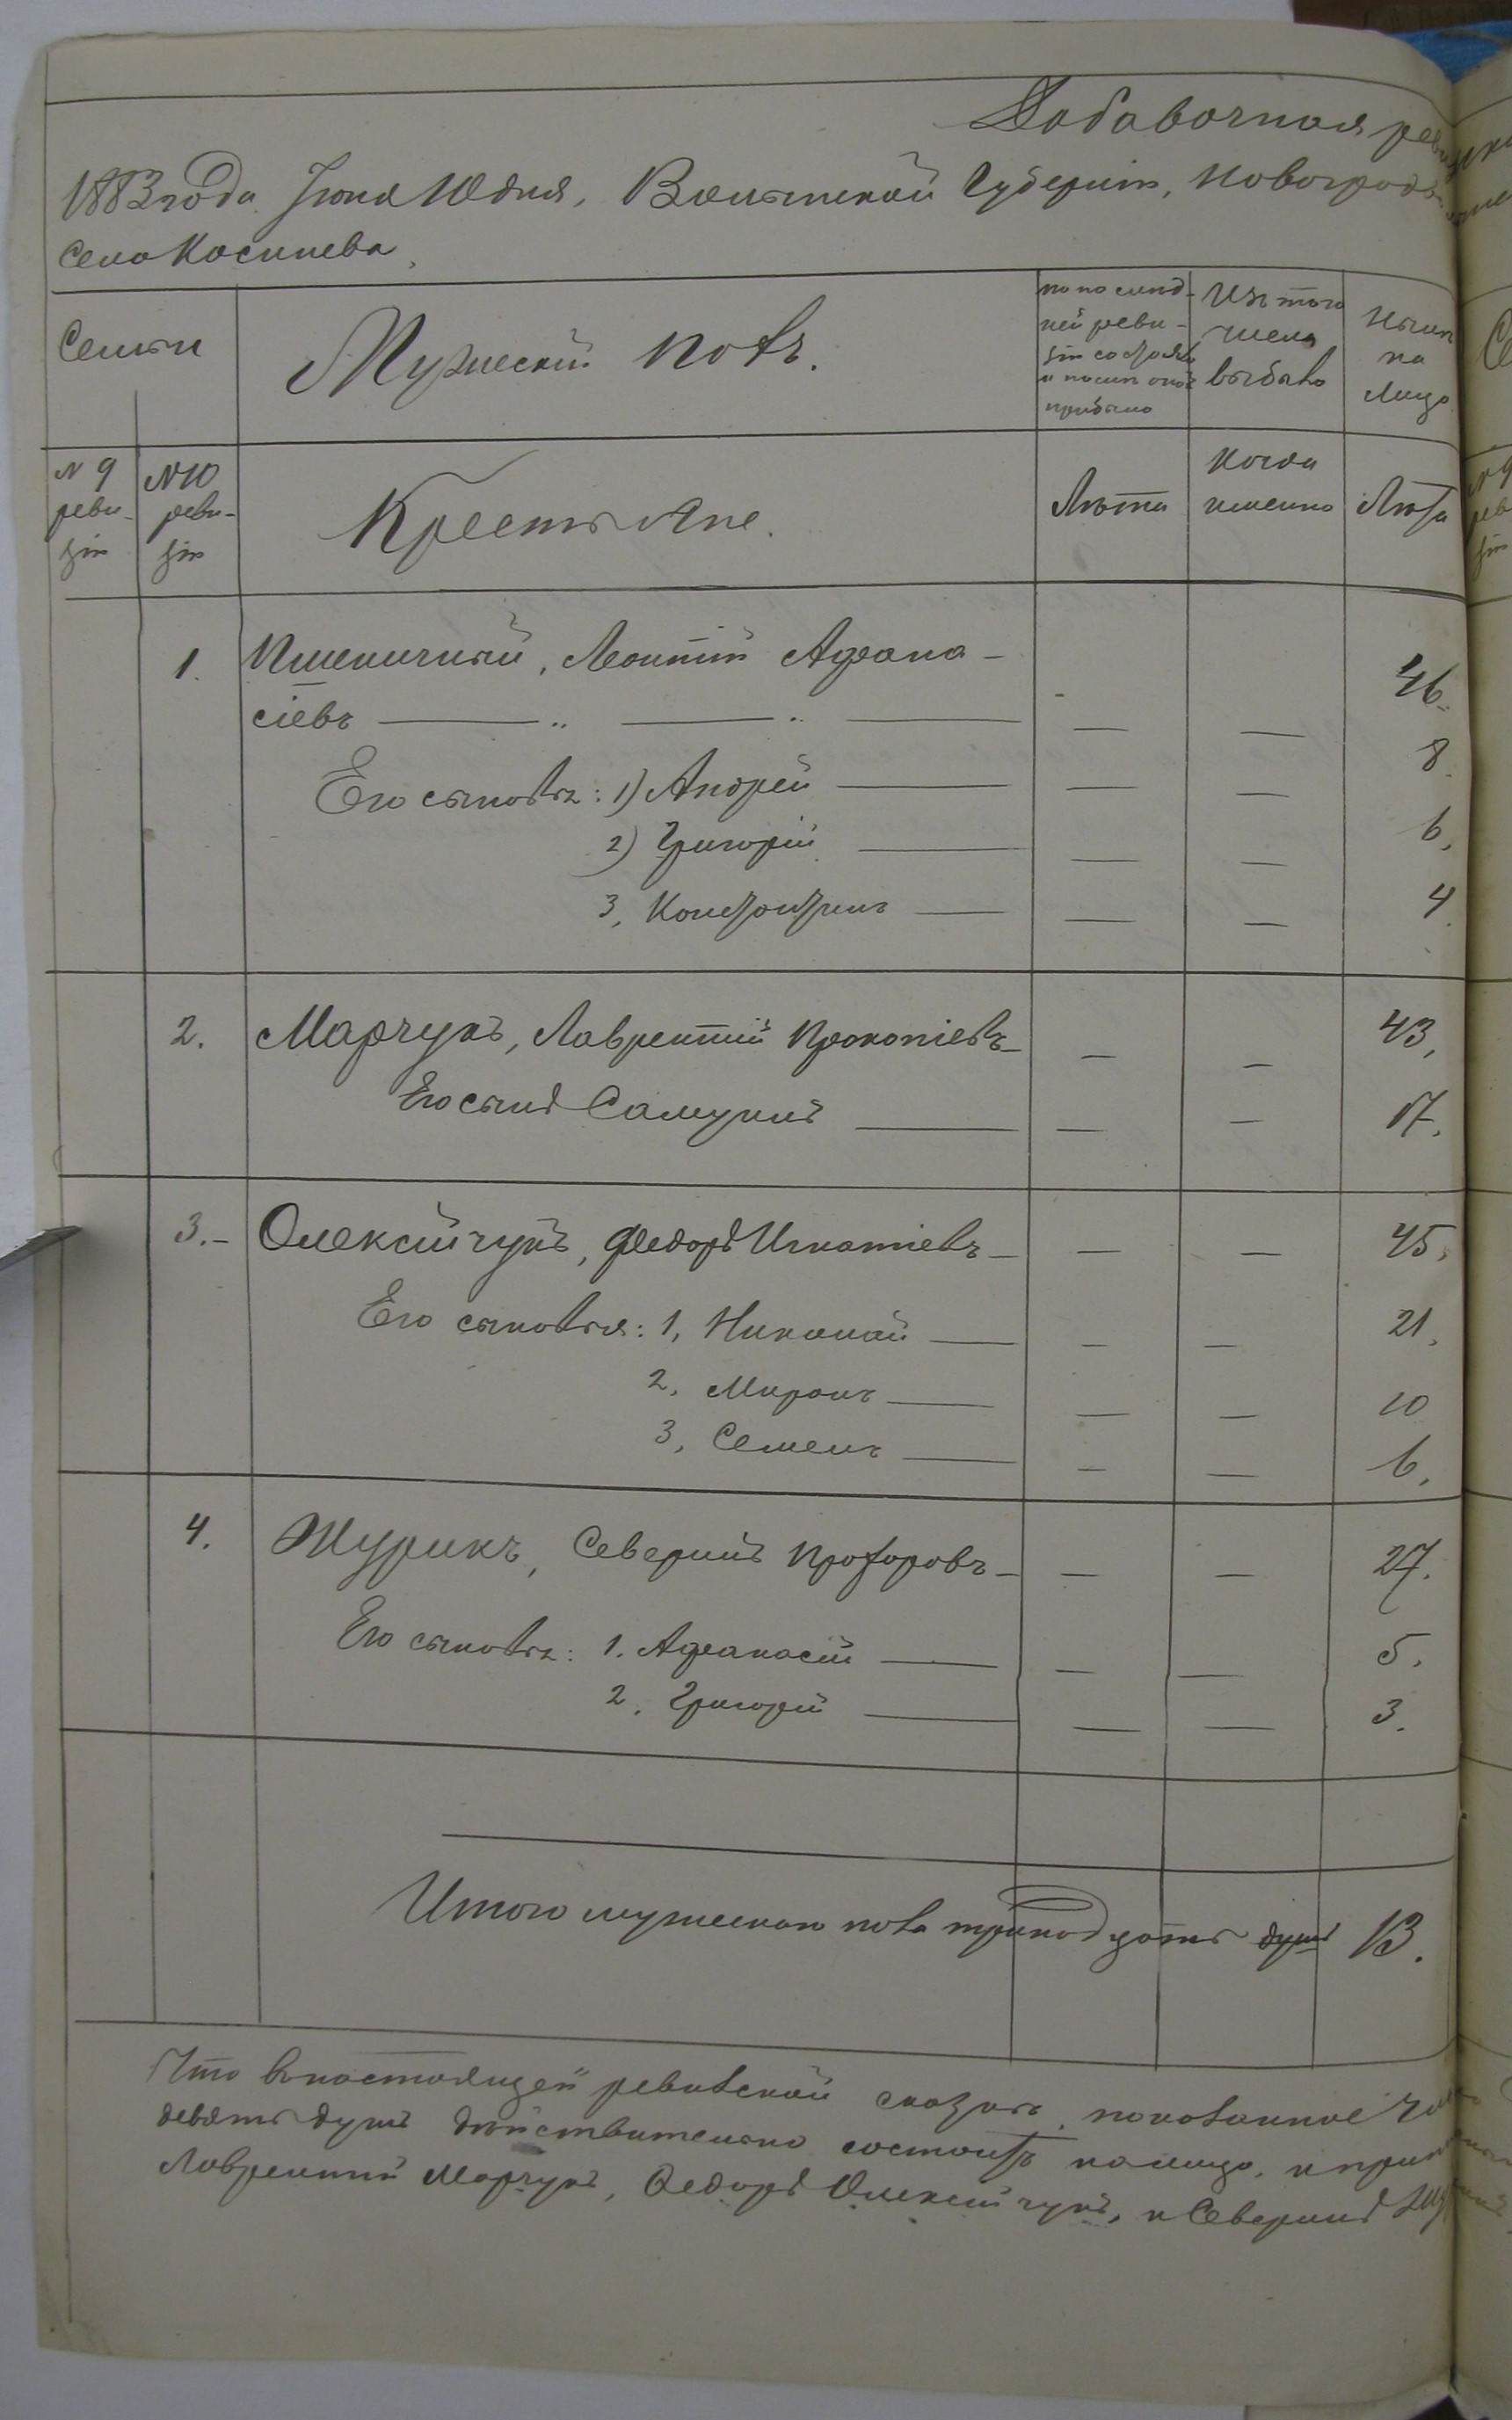 Добавочная рев
1883 года Iюня 10 дня, Волынской Губернiи, Новоградъ
Село Косинева
Семьи
Мужескiй полъ.
по послѣд-
ней реви-
зiи состояло
и послѣ оной
прибыло
Изъ того
числа
выбыло
Нынѣ
на
лицо
№ 9
реви-
зiи
№ 10
реви-
зiи
Крестьяне.
Лѣта
Когда
именно
Лѣта
1. Пшеничный, Леонтiй Афана-
сiевъ — — — 46.
Его сыновья: 1) Андрей — — — 8.
2) Григорiй — — — 6.
3, Константинъ — — — 4.
2. Марчукъ, Лаврентiй Прокопiевъ — — — 43,
Его сынъ Самуилъ — — — 17.
3. Олексiйчукъ, Федоръ Игнатiевъ — — — 45,
Его сыновья: 1, Николай — — — 21.
2, Миронъ — — — 10
3, Семенъ — — — 6.
4. Журикъ, Северинъ Прохоровъ — — — 27.
Его сыновья: 1. Афанасiй — — — 5.
2. Григорiй — — — 3.
Итого мужескаго пола тринадцать душъ 13.
Что въ настоящей ревизской сказкѣ показанное
девять душъ дѣйствительно состоитъ на лицо, и при
Лаврентiй Марчукъ, Федоръ Олексiйчукъ, и Северинъ Жу